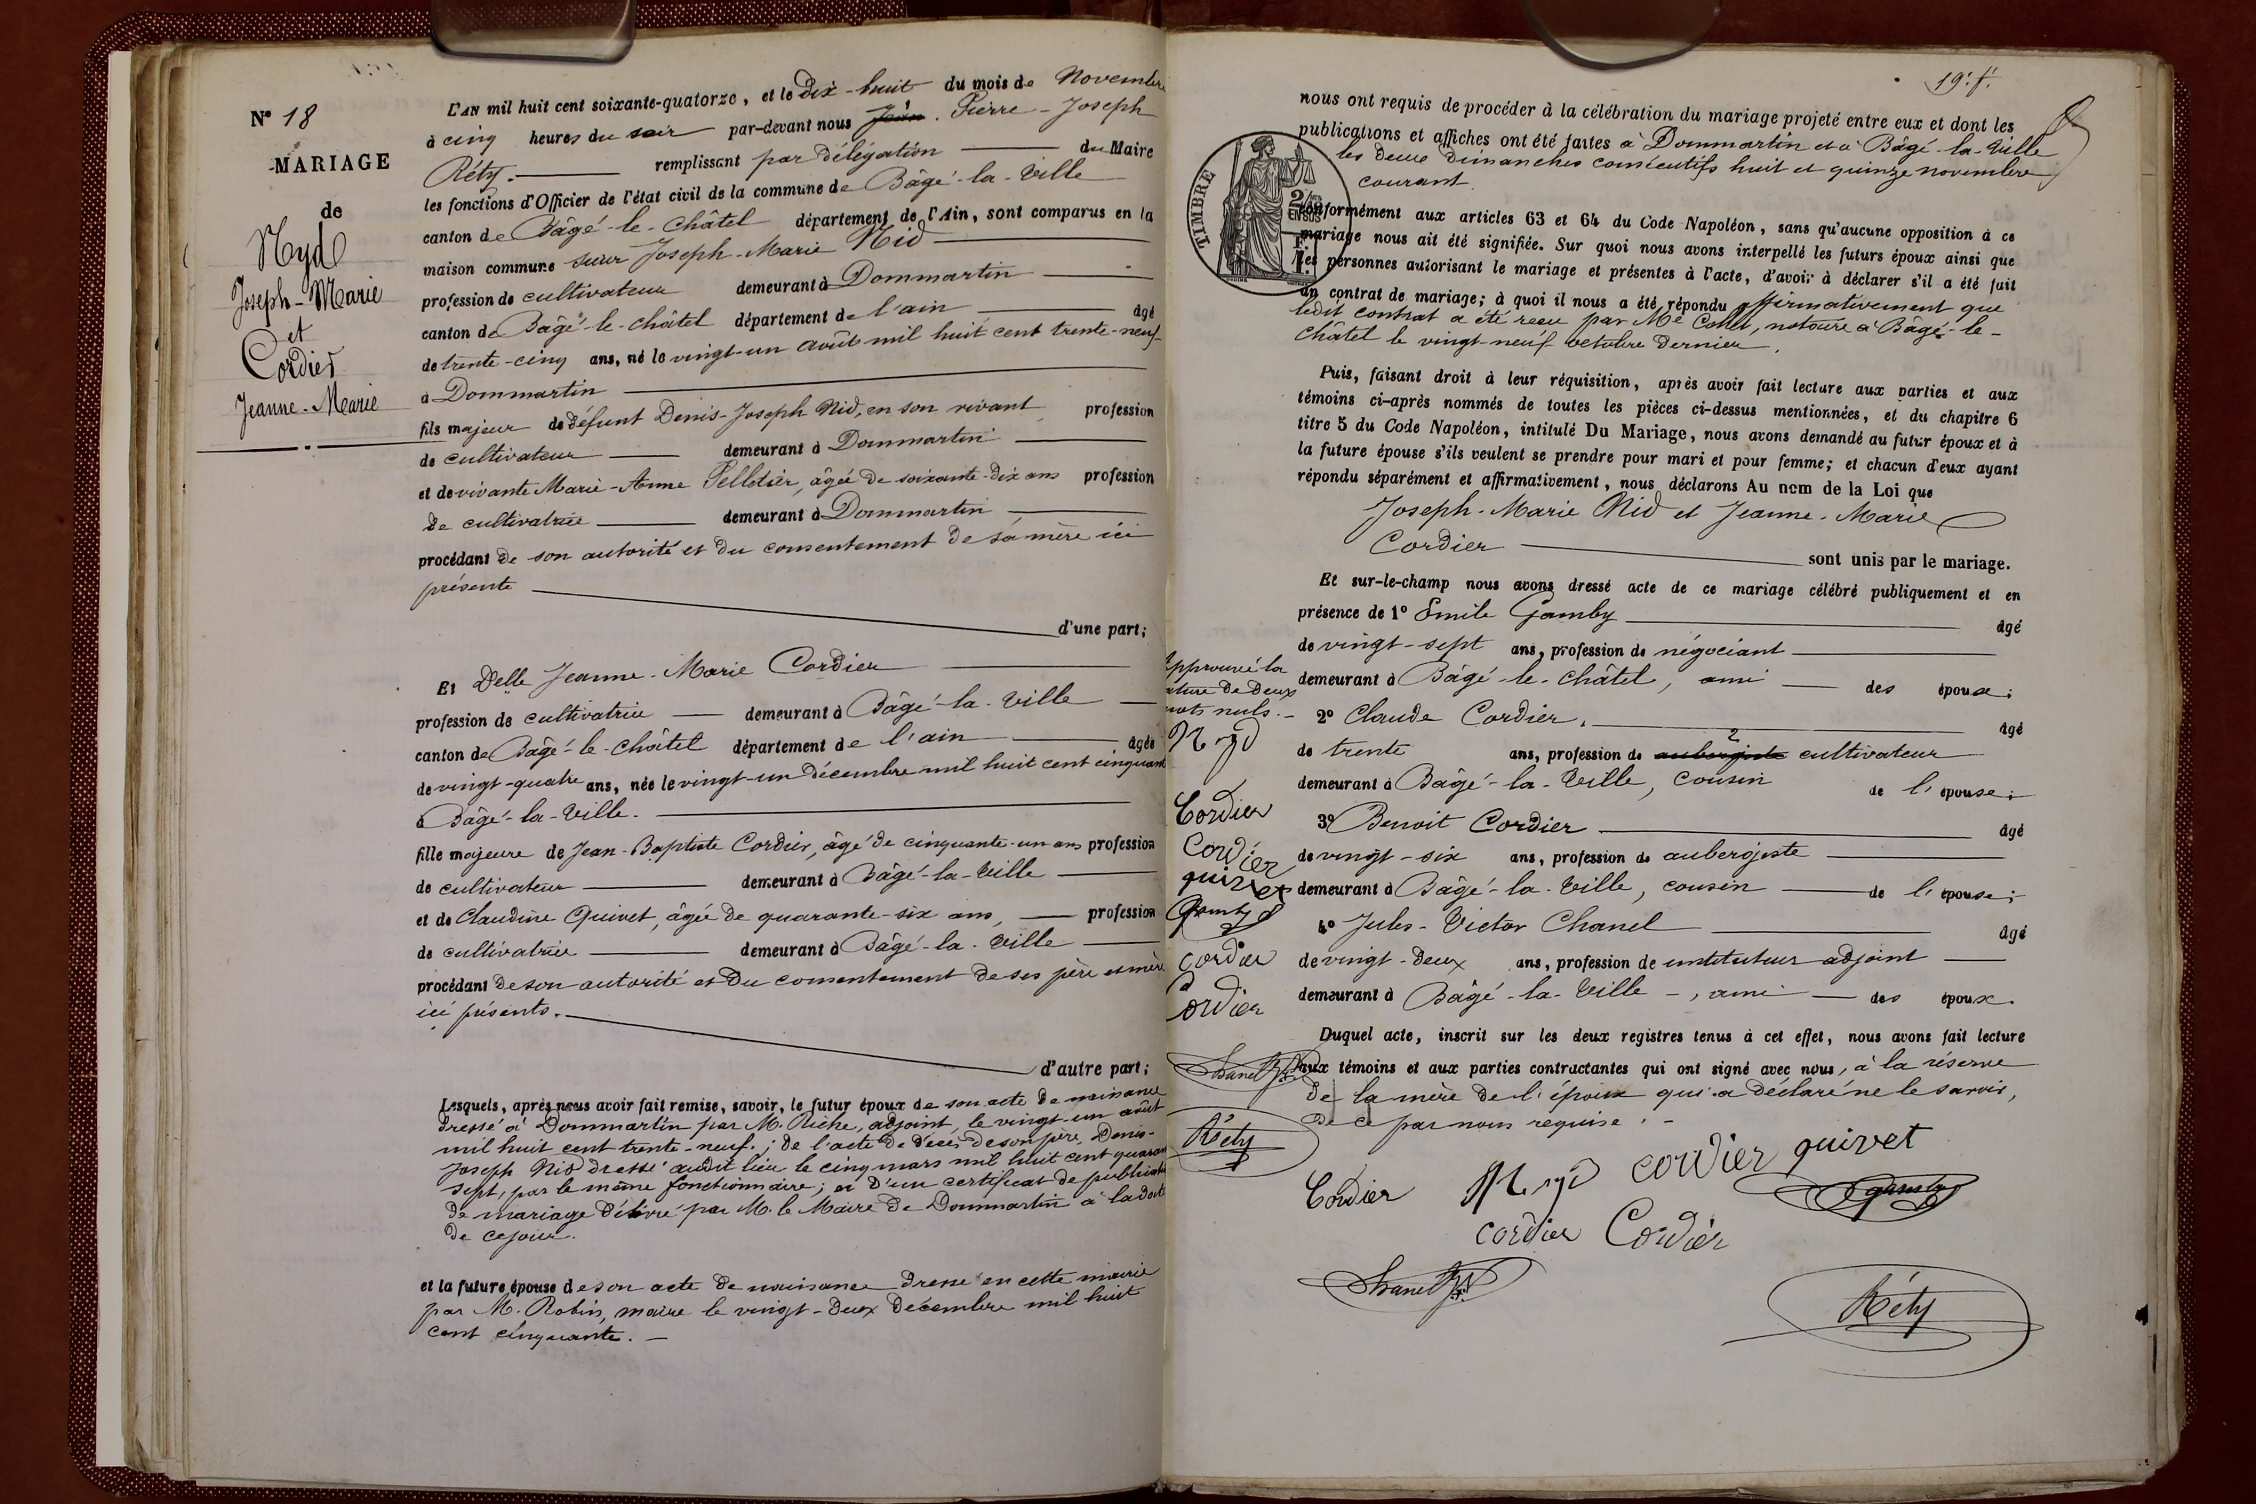 N° 18
MARIAGE
de
Nyd
Joseph-Marie
et
Cordier
Jeanne-Marie
L'AN mil huit cent soixante-quatorze, et le Dix-huit du mois de Novembre
à cinq heures du soir par-devant nous Jean. Pierre-Joseph
Réty. remplissant par délégation du Maire
les fonctions d'Officier de l'état civil de la commune de Bâgé-la-Ville
canton de Bâgé-le-Châtel département de l'Ain, sont comparus en la
maison commune sieur Joseph-Marie Nid
profession de cultivateur demeurant à Dommartin
canton de Bâgé-le-châtel département de l'ain âgé
de trente-cinq ans, né le vingt-un août mil huit cent trente-neuf
à Dommartin
fils majeur de défunt Denis-Joseph Nid, en son vivant profession
de cultivateur demeurant à Dommartin
et de vivante Marie-Anne Pelletier, âgée de soixante-dix ans profession
de cultivatrice demeurant à Dommartin
procédant de son autorité et du consentement de sa mère ici
présente
d'une part;
Et Delle Jeanne-Marie Cordier
profession de cultivatrice demeurant à Bâgé-la-Ville
canton de Bâgé-le-Châtel département de l'ain âgée
de vingt-quatre ans, née le vingt-un décembre mil huit cent cinquante
à Bâgé-la-Ville.
fille majeure de Jean-Baptiste Cordier, âgé de cinquante-un ans profession
de cultivateur demeurant à Bâgé-la-Ville
et de Claudine Quivet, âgée de quarante-six ans, profession
de cultivatrice demeurant à Bâgé-la-Ville
procédant de son autorité et du consentement de ses père et mère
ici présents.
d'autre part;
Lesquels, après nous avoir fait remise, savoir, le futur époux de son acte de naissance
dressé à Dommartin par M. Riche, adjoint, le vingt-un août
mil huit cent trente-neuf.; de l'acte de décès de son père, Denis-
Joseph Nid dressé audit lieu le cinq mars mil huit cent quarante
sept, par le même fonctionnaire; et d'un certificat de publication
de mariage délivré par M. le Maire de Dommartin à la date
de ce jour.
et la future épouse de son acte de naissance dressé en cette mairie
par M. Robin, maire le vingt-deux décembre mil huit
cent cinquante.
19. f.
nous ont requis de procéder à la célébration du mariage projeté entre eux et dont les
publications et affiches ont été faites à Dommartin et à Bâgé-la-Ville
les deux dimanches consécutifs huit et quinze novembre
courant.
TIMBRE
2/10
EN SUS
F.
Conformément aux articles 63 et 64 du Code Napoléon, sans qu'aucune opposition à ce
mariage nous ait été signifiée. Sur quoi nous avons interpellé les futurs époux ainsi que
les personnes autorisant le mariage et présentes à l'acte, d'avoir à déclarer s'il a été fait
un contrat de mariage; à quoi il nous a été répondu affirmativement que
ledit contrat a été reçu par Me Collet, notaire à Bâgé-le-
Châtel le vingt-neuf octobre dernier.
Puis, faisant droit à leur réquisition, après avoir fait lecture aux parties et aux
témoins ci-après nommés de toutes les pièces ci-dessus mentionnées, et du chapitre 6
titre 5 du Code Napoléon, intitulé Du Mariage, nous avons demandé au futur époux et à
la future épouse s'ils veulent se prendre pour mari et pour femme; et chacun d'eux ayant
répondu séparément et affirmativement, nous déclarons Au nom de la Loi que
Joseph-Marie Nid et Jeanne-Marie
Cordier
sont unis par le mariage.
Et sur-le-champ nous avons dressé acte de ce mariage célébré publiquement et en
présence de 1° Emile Gamby âgé
de vingt-sept ans, profession de négociant
demeurant à Bâgé-le-Châtel, ami des époux;
2° Claude Cordier. âgé
de trente ans, profession de aubergiste cultivateur
demeurant à Bâgé-la-Ville, cousin de l'épouse;
3° Benoit Cordier âgé
de vingt-six ans, profession de aubergiste
demeurant à Bâgé-la-Ville, cousin de l'épouse;
4° Jules-Victor Chanel âgé
de vingt-deux ans, profession de instituteur adjoint
demeurant à Bâgé-la-Ville, ami des époux.
Duquel acte, inscrit sur les deux registres tenus à cet effet, nous avons fait lecture
aux témoins et aux parties contractantes qui ont signé avec nous, à la réserve
de la mère de l'époux qui a déclaré ne le savoir,
de ce par nous requise.
Approuvé la
rature de deux
mots nuls.
Nyd
Cordier
Cordier
quivet
Gamby
Cordier
Cordier
Chanel
Réty
Cordier Nyd cordier quivet
Gamby
cordier Cordier
Chanel
Réty